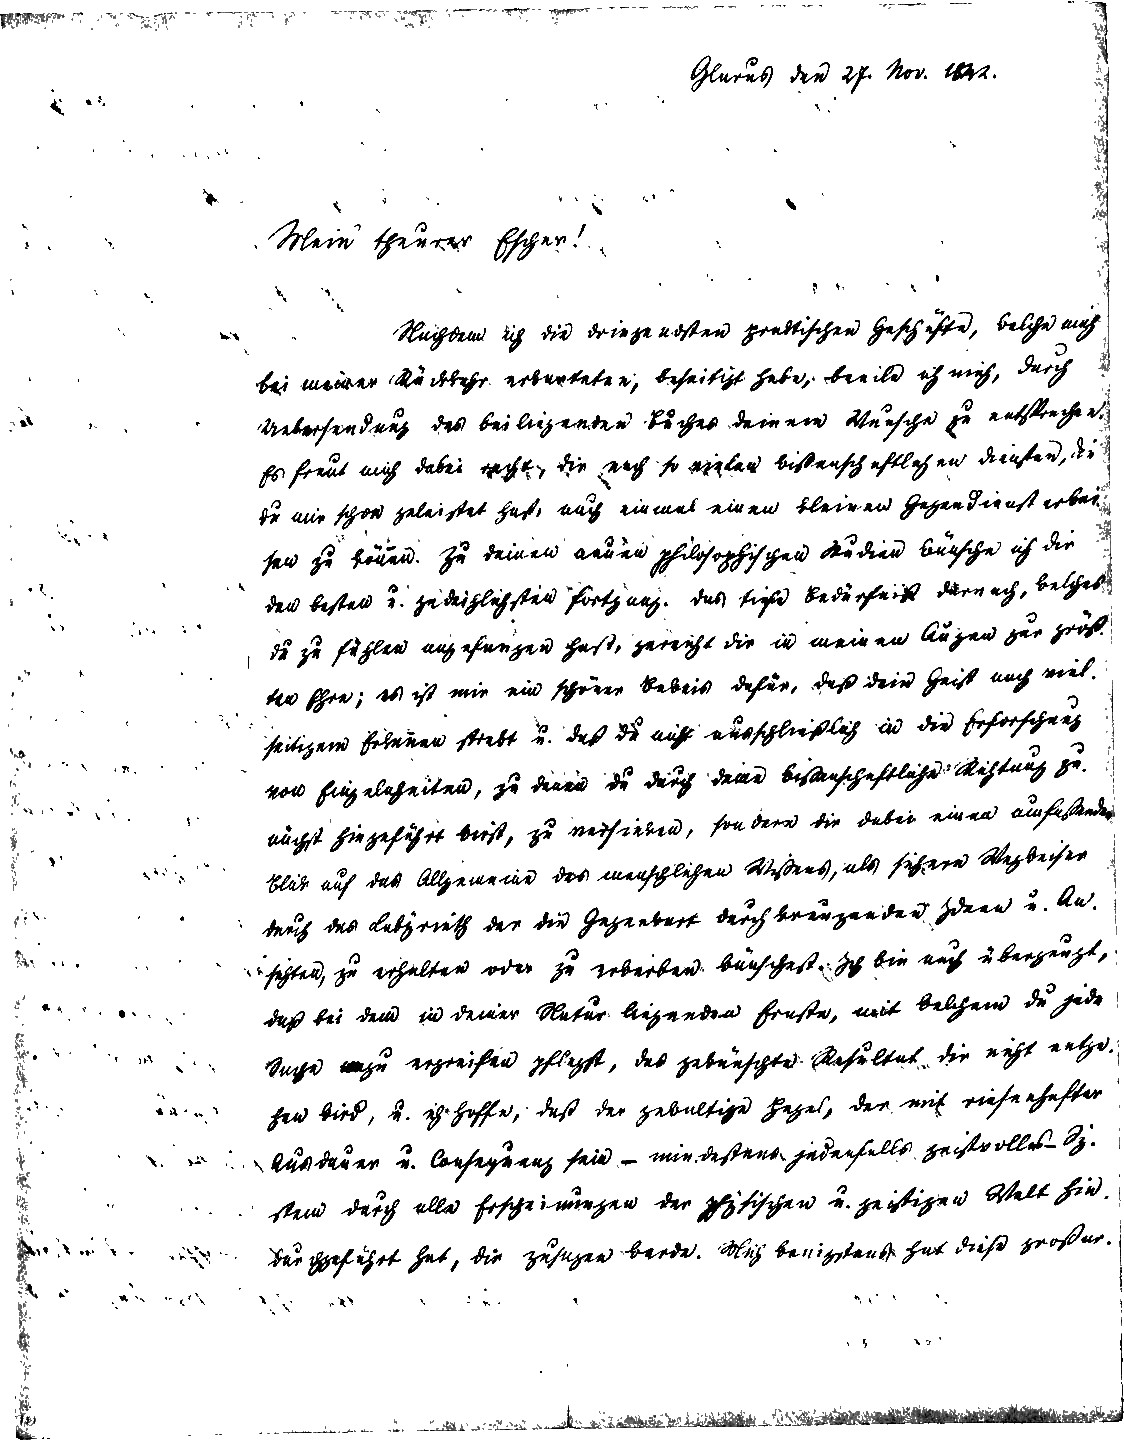 Glarus den 27. Nov. 1842.
Mein theurer Escher!
Nachdem ich die dringendsten praktischen Geschäfte, welche mich
bei meiner Rückkehr erwarteten, beseitigt habe, beeile ich mich, durch
Uebersendung des beiliegenden Buches deinem Wunsche zu entsprechen.
Es freut mich dabei recht, dir nach so vielen wissenschaftlichen Diensten, die
du mir schon geleistet hast, auch einmal einen kleinen Gegendienst erwei-
sen zu können. Zu deinen neuen philosophischen Studien wünsche ich dir
den besten u. gedeihlichsten Fortgang. Das tiefe Bedürfniß darnach, welches
du zu fühlen angefangen hast, gereicht dir in meinen Augen zur größ-
ten Ehre; es ist mir ein schöner Beweis dafür, daß dein Geist nach viel-
seitigem Erkennen strebt u. daß du nicht ausschließlich in die Erforschung
von Einzelnheiten, zu denen du durch deine wissenschaftliche Richtung zu-
nächst hingeführt wirst, zu versinken, sondern dir dabei einen umfassenden
Blick auf das Allgemeine des menschlichen Wissens, als sichern Wegweiser
durch das Labyrinth der die Gegenwart durchkreuzenden Ideen u. An-
sichten, zu erhalten oder zu erwerben wünschest. Ich bin auch überzeugt,
daß bei dem in deiner Natur liegenden Ernste, mit welchem du jede
Sache anzu ergreifen pflegst, das gewünschte Resultat dir nicht entge-
hen wird, u. ich hoffe, daß der gewaltige Hegel, der mit riesenhafter
Ausdauer u. Consequenz sein – mindestens jedenfalls geistvolles – Sy-
stem durch alle Erscheinungen der physischen u. geistigen Welt hin-
durchgeführt hat, dir zusagen werde. Mich wenigstens hat diese großar-